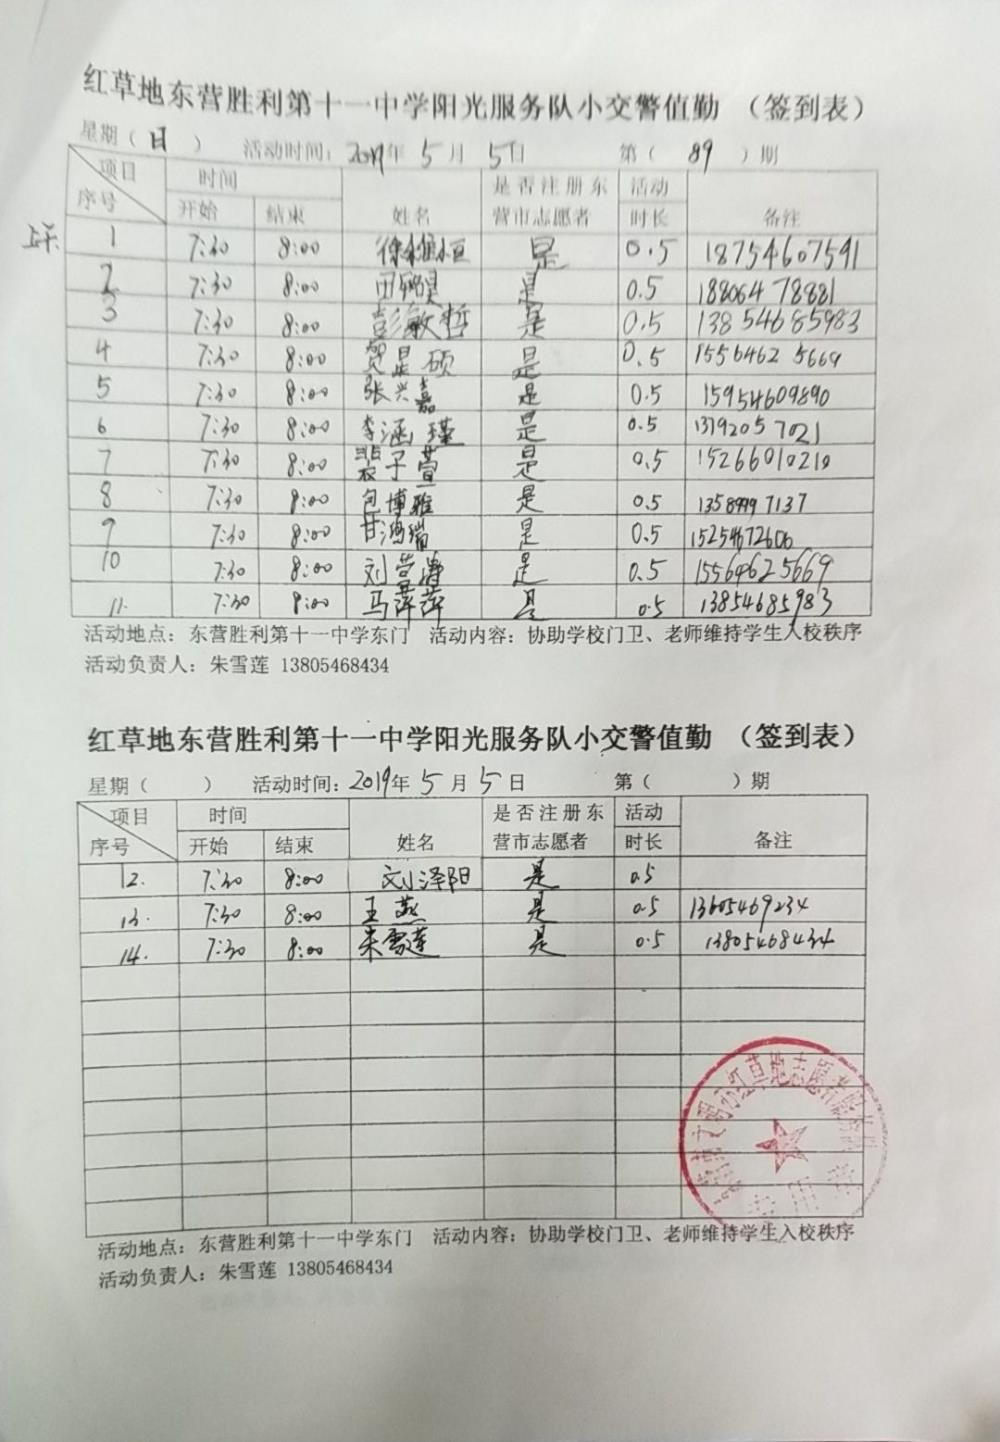 红草地东营胜利第十一中学阳光服务队小交警值勤 （签到表）
星期（ 日 ） 活动时间：2019年 5 月 5日 第（ 89 ）期
项目 时间 是否注册东 活动
序号 开始 结束 姓名 营市志愿者 时长 备注
1 7:30 8:00 是 0.5 18754607541
2 7:30 8:00 是 0.5 18806478881
3 7:30 8:00 彭敏哲 是 0.5 13854685983
4 7:30 8:00 贺星硕 是 0.5 15564625669
5 7:30 8:00 张兴嘉 是 0.5 15954609890
6 7:30 8:00 李涵瑾 是 0.5 13792057021
7 7:30 8:00 裴子萱 是 0.5 15266010210
8 7:30 8:00 包博雅 是 0.5 13589997137
9 7:30 8:00 甘鸿瑞 是 0.5 15254672606
10 7:30 8:00 刘营涛 是 0.5 15564625669
11. 7:30 8:00 马萍萍 是 0.5 13854685983
活动地点：东营胜利第十一中学东门 活动内容：协助学校门卫、老师维持学生入校秩序
活动负责人：朱雪莲 13805468434
红草地东营胜利第十一中学阳光服务队小交警值勤 （签到表）
星期（ ） 活动时间：2019年 5 月 5 日 第（ ）期
项目 时间 是否注册东 活动
序号 开始 结束 姓名 营市志愿者 时长 备注
12. 7:30 8:00 刘泽阳 是 0.5
13. 7:30 8:00 王燕 是 0.5 13605469234
14. 7:30 8:00 朱雪莲 是 0.5 13805468434
活动地点：东营胜利第十一中学东门 活动内容：协助学校门卫、老师维持学生入校秩序
活动负责人：朱雪莲 13805468434